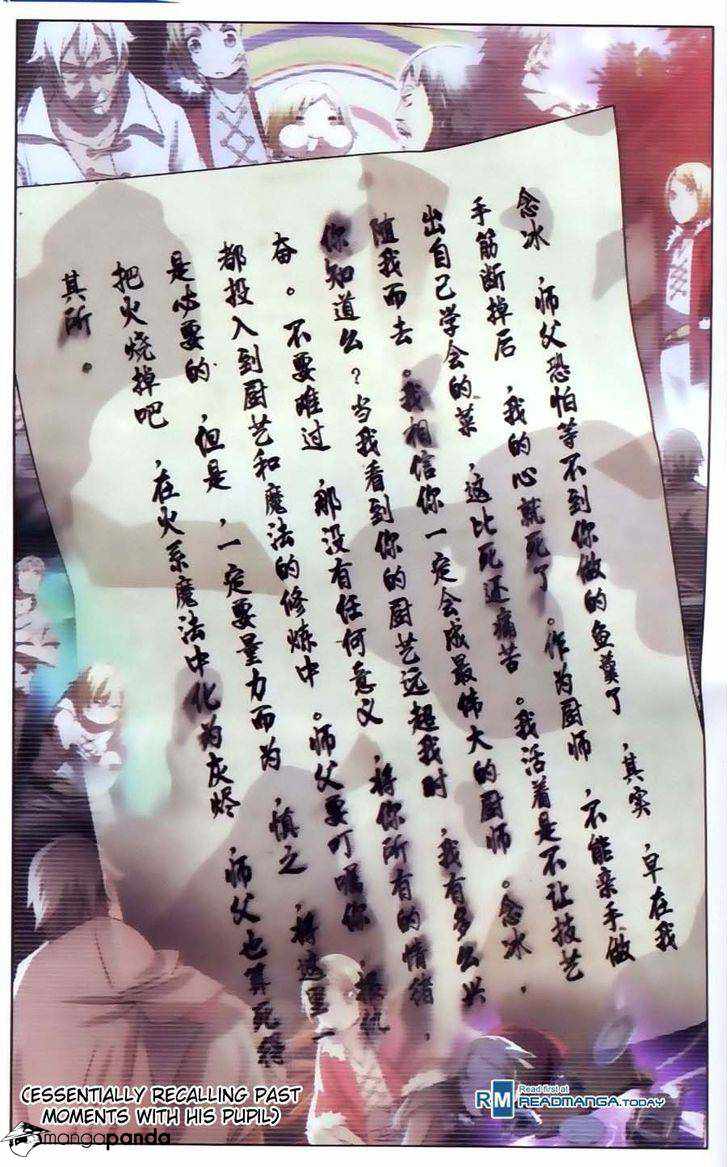 念冰，师父恐怕等不到你做的鱼羹了，其实，早在我
手筋断掉后，我的心就死了。作为厨师，不能亲手做
出自己学会的菜，这比死还痛苦。我活着是不让技艺
随我而去。我相信你一定会成最伟大的厨师。念冰，
你知道么？当我看到你的厨艺远超我时，我有多么兴
奋。不要难过，那没有任何意义，将你所有的情绪，
都投入到厨艺和魔法的修炼中。师父要叮嘱你，报仇
是必要的，但是，一定要量力而为，慎之，将这里一
把火烧掉吧，在火系魔法中化为灰烬 师父也算死得
其所。
(ESSENTIALLY RECALLING PAST
MOMENTS WITH HIS PUPIL)
mangapanda
RM
Read first at
READMANGA.TODAY